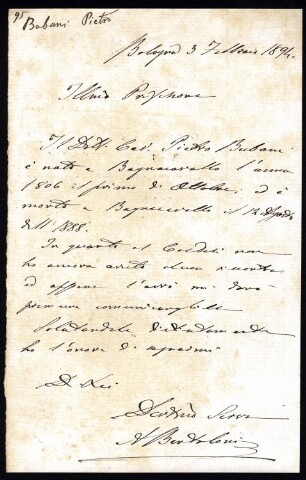 95
Bubani Pietro
Bologna 3 Febbraio 1894.
Illmo Professore
Il Dr. Cav. Pietro Bubani
è nato a Bagnacavallo l'anno
1806 il primo di Ottobre, ed è
morto a Bagnacavallo il
dell' 1888.
In quanto al non
ho ancora avuto
ed appena l'avrò mi darò
premura comunicargliela
Salutandola distintamente
ho l'onore di
Di Lei
Servo
A Bertoloni